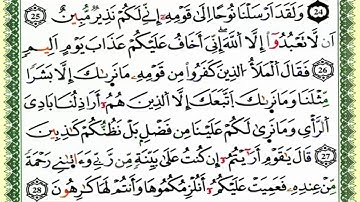 24 وَلَقَدْ أَرْسَلْنَا نُوحًا إِلَىٰ قَوْمِهِۦٓ إِنِّے لَكُمْ نَذِيرٌ مُّبِينٌ 25
أَن لَّا تَعْبُدُوٓا۟ إِلَّا ٱللَّهَ إِنِّىَ أَخَافُ عَلَيْكُمْ عَذَابَ يَوْمٍ أَلِيمٍ
26 فَقَالَ ٱلْمَلَأُ ٱلَّذِينَ كَفَرُوا۟ مِن قَوْمِهِۦ مَا نَرَىٰكَ إِلَّا بَشَرًا
مِّثْلَنَا وَمَا نَرَىٰكَ ٱتَّبَعَكَ إِلَّا ٱلَّذِينَ هُمُۥٓ أَرَاذِلُنَا بَادِىَ
ٱلرَّأْىِ وَمَا نَرَىٰ لَكُمْ عَلَيْنَا مِن فَضْلٍ بَلْ نَظُنُّكُمْ كَٰذِبِينَ
27 قَالَ يَٰقَوْمِ أَرَٰٓيْتُمُۥٓ إِن كُنتُ عَلَىٰ بَيِّنَةٍ مِّن رَّبِّے وَءَاتَىٰنِے رَحْمَةً
مِّنْ عِندِهِۦ فَعَمِيَتْ عَلَيْكُمُۥٓ أَنُلْزِمُكُمُوهَا وَأَنتُمْ لَهَا كَٰرِهُونَ 28